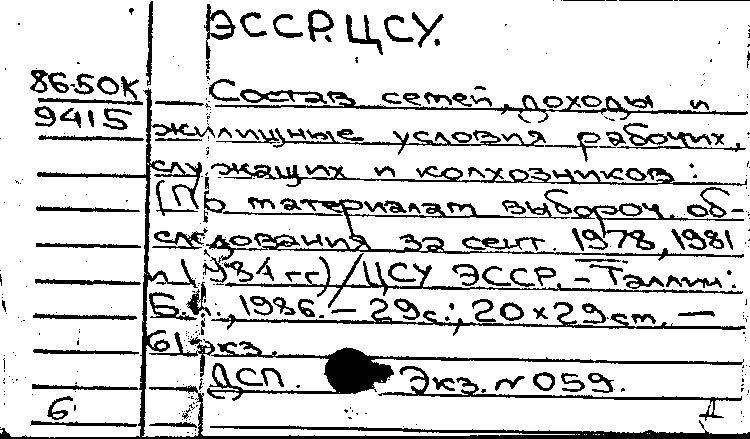 ЭССР. ЦСУ.
86-50К
Состав семей, доходы и
9415
жилищные условия рабочих,
служащих и колхозников:
(По материалам выбороч. об-
следования за сент. 1978, 1981
и 1984 гг)/ЦСУ ЭССР. - Таллин:
Б.и., 1986. - 29с.; 20×29см. -
61 экз.
ДСП. Экз. № 059.
6 Д